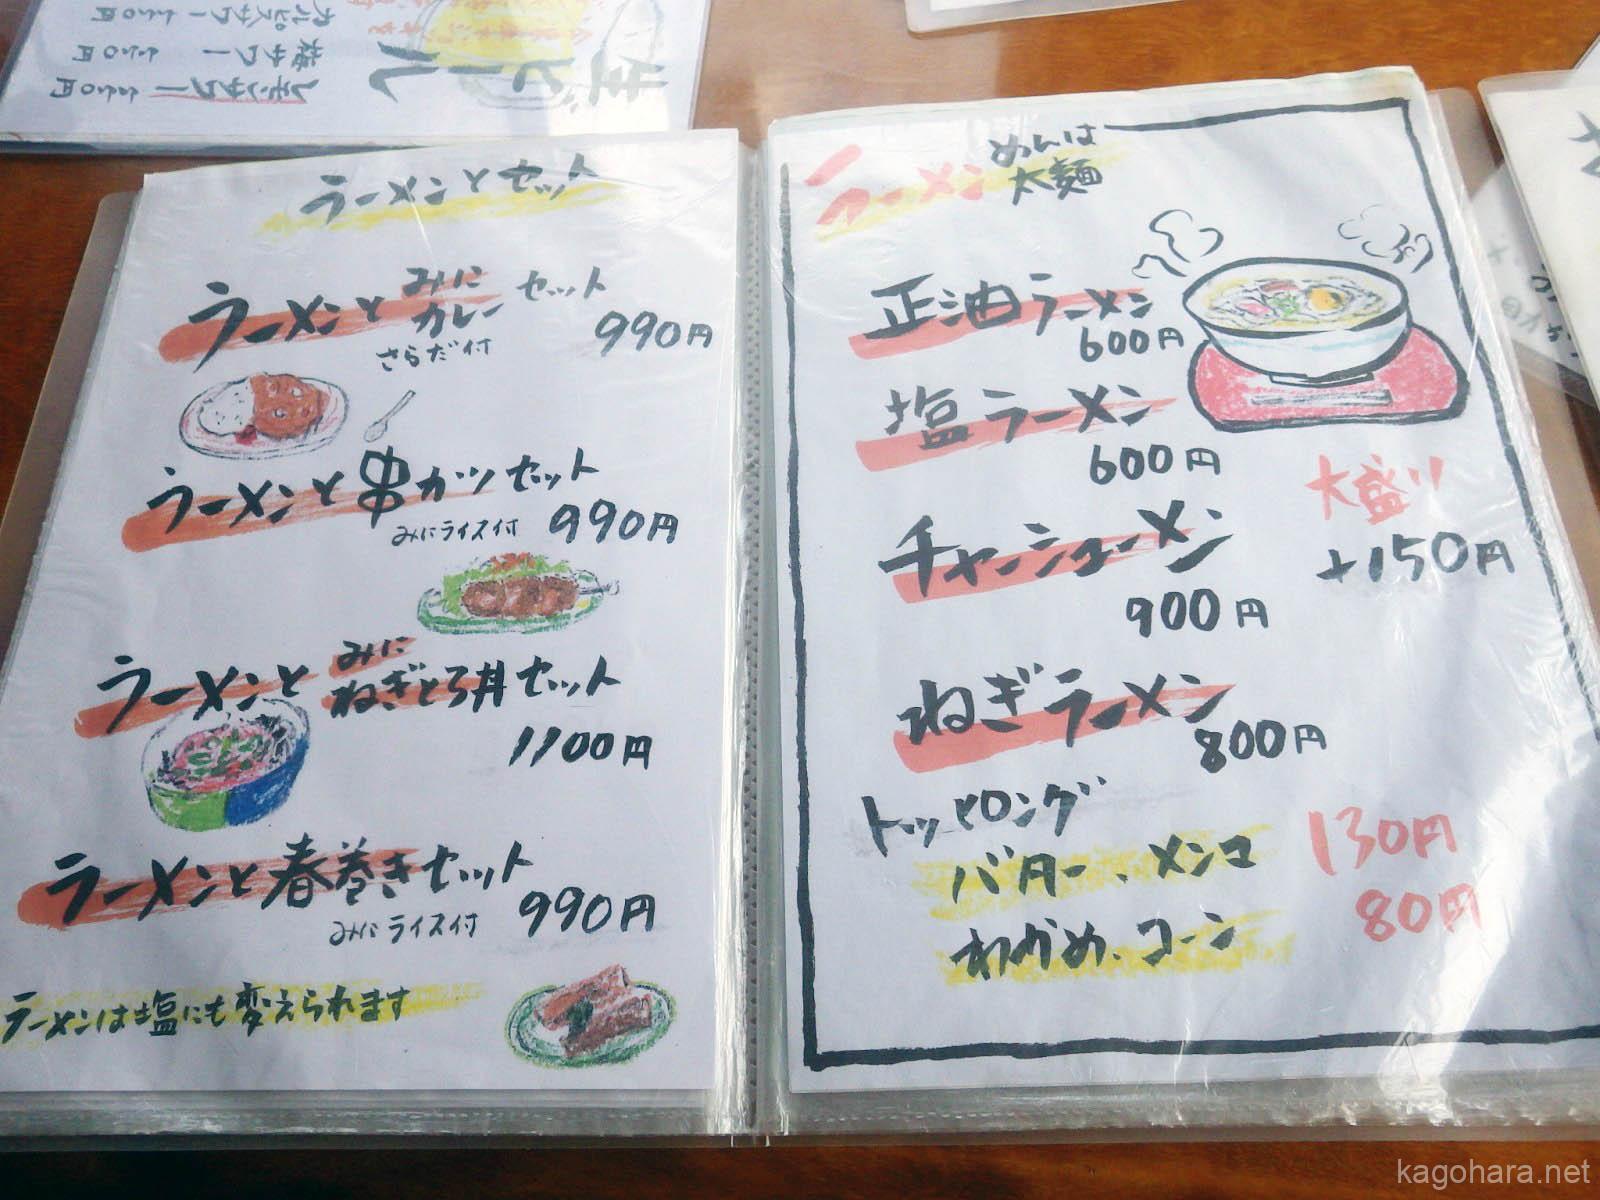 カルピスサワー
梅サワー
レモンサワー
生ビール
ラーメンとセット
ラーメンとみにカレーセット
さらだ付
990円
ラーメンと串カツセット
みにライス付
990円
ラーメンとみにねぎとろ丼セット
1100円
ラーメンと春巻きセット
みにライス付
990円
ラーメンは塩にも変えられます
ラーメン
めんは
太麺
正油ラーメン
600円
塩ラーメン
600円
大盛り
+150円
チャーシューメン
900円
ねぎラーメン
800円
トッピング
バター、メンマ 130円
わかめ、コーン 80円
kagohara.net